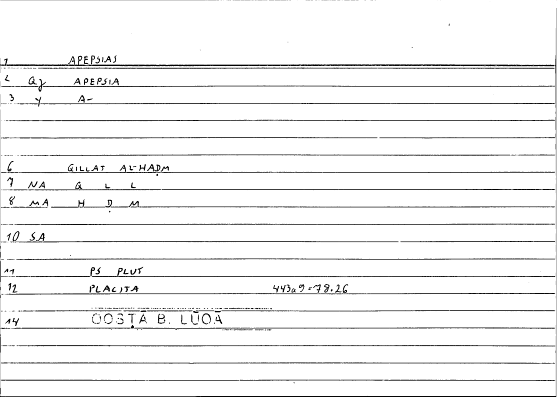 1 APEPSIAS
2 Qz APEPSIA
3 y A-
6 QILLAT AL-HAḌM
7 NA Q L L
8 MA H Ḍ M
10 SA
11 PS PLUT
12 PLACITA 443a9=78.26
14 QOSṬĀ B. LŪQĀ